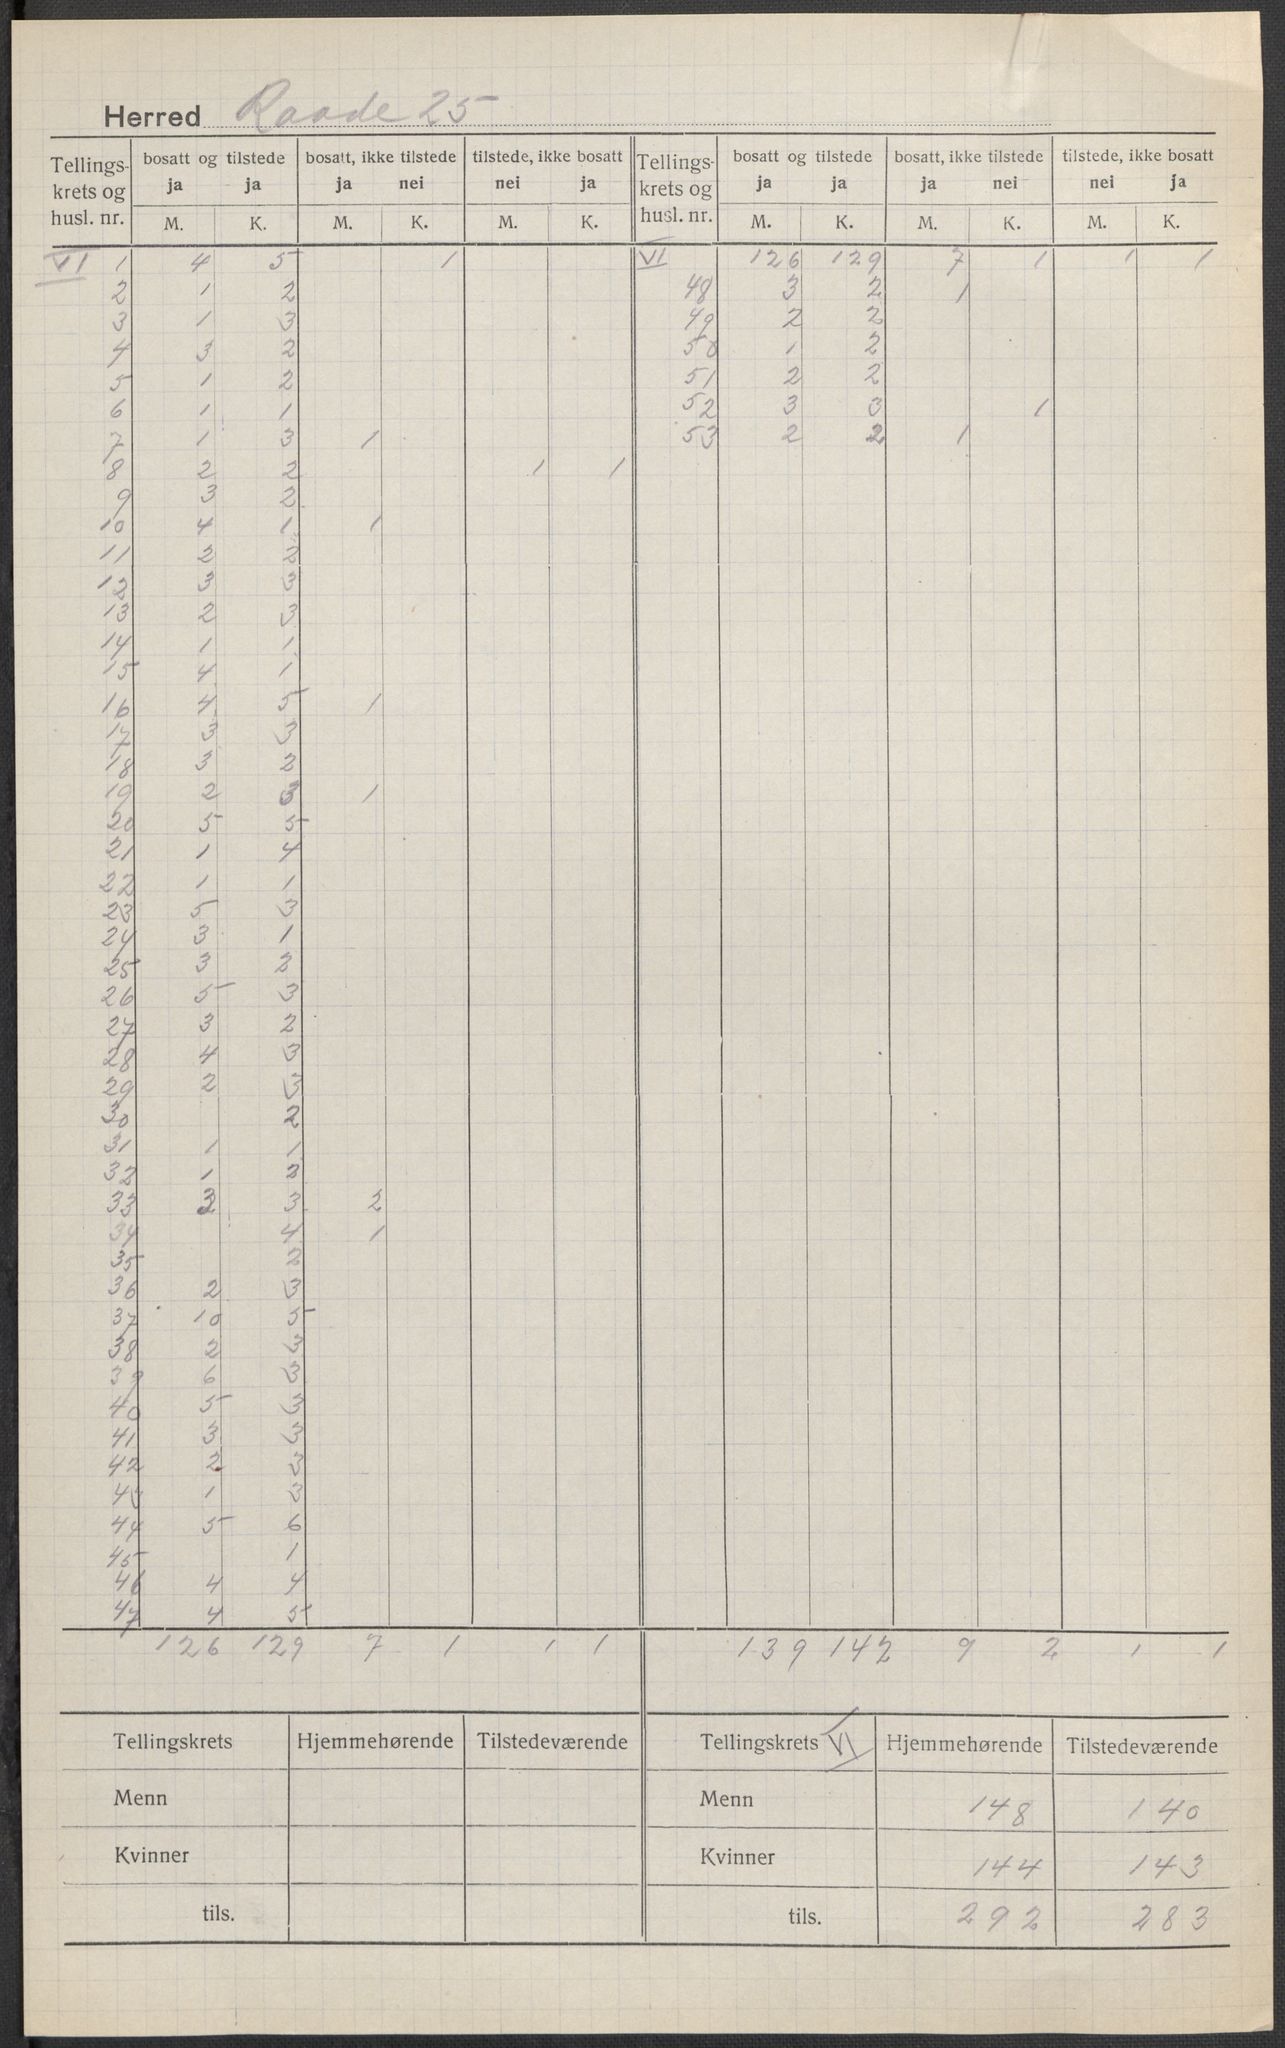 Herred Raade 25
Tellings- krets og husl. nr. | bosatt og tilstede ja ja | bosatt, ikke tilstede ja nei | tilstede, ikke bosatt nei ja | Tellings- krets og husl. nr. | bosatt og tilstede ja ja | bosatt, ikke tilstede ja nei | tilstede, ikke bosatt nei ja
M. K. M. K. M. K. M. K. M. K. M. K.
VI 1 4 5 1 VI 126 129 7 1 1 1
2 1 2 48 3 2 1
3 1 3 49 2 2
4 3 2 50 1 2
5 1 2 51 2 2
6 1 1 52 3 3 1
7 1 3 1 53 2 2 1
8 2 2 1 1
9 3 2
10 4 1 1
11 2 2
12 3 3
13 2 3
14 1 1
15 4 1
16 4 5 1
17 3 3
18 3 2
19 2 3 1
20 5 5
21 1 4
22 1 1
23 5 3
24 3 1
25 3 2
26 5 3
27 3 2
28 4 3
29 2 3
30 2
31 1 1
32 1 2
33 2 3 2
34 4 1
35 2
36 2 3
37 10 5
38 2 3
39 6 3
40 5 3
41 3 3
42 2 3
43 1 3
44 5 6
45 1
46 4 4
47 4 5
126 129 7 1 1 1 139 142 9 2 1 1
Tellingskrets Hjemmehørende Tilstedeværende Tellingskrets VI Hjemmehørende Tilstedeværende
Menn Menn 148 140
Kvinner Kvinner 144 143
tils. tils. 292 283